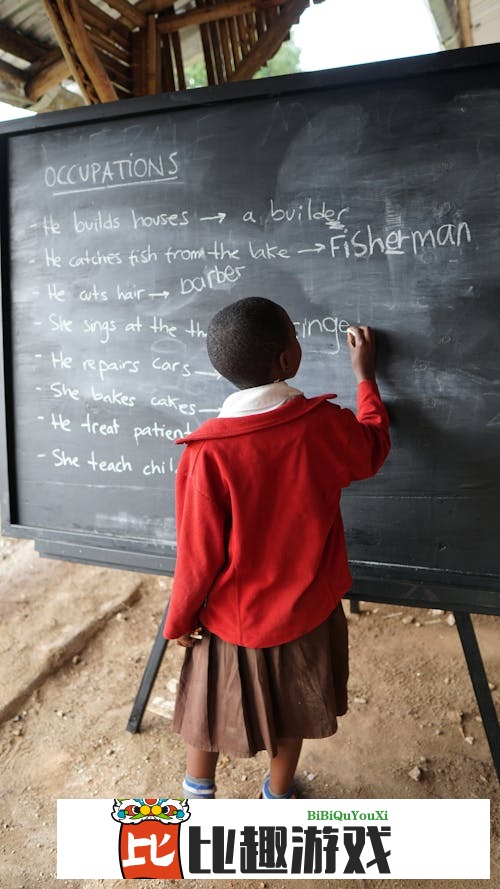 OCCUPATIONS
- He builds houses → a builder
- He catches fish from the lake → Fisherman
- He cuts hair → barber
- She sings at the the
- He repairs cars →
- She bakes cakes →
- He treat patient
- She teach chil
BiBiQuYouXi
比 比趣游戏